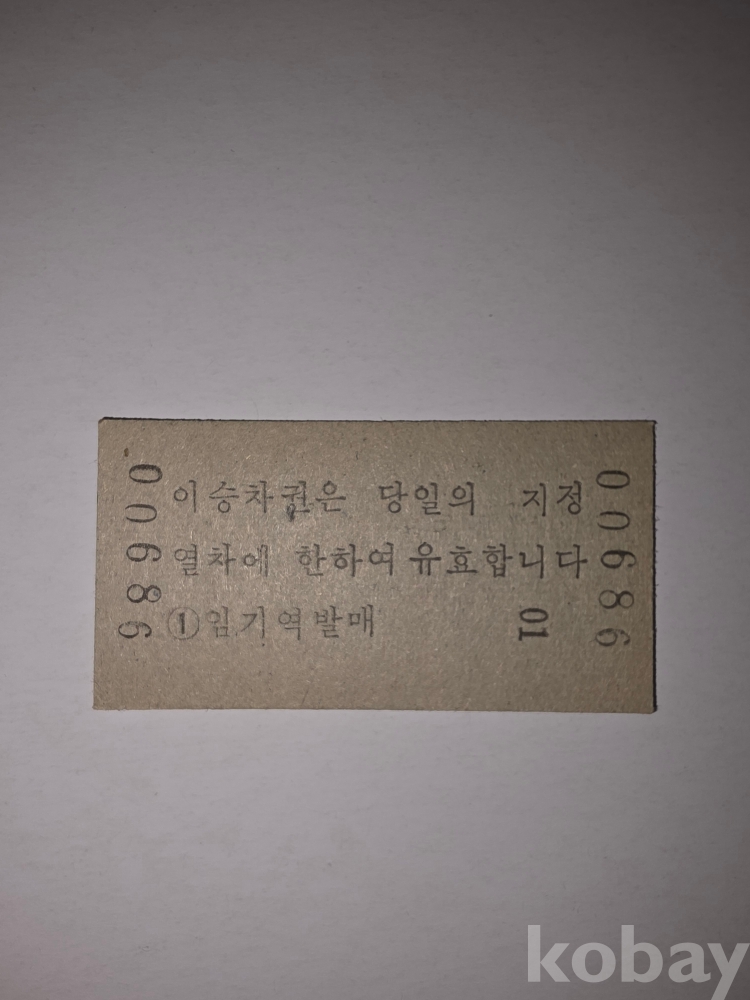 00686
이승차권은 당일의 지정
열차에 한하여 유효합니다
①임기역발매
01
00686
kobay